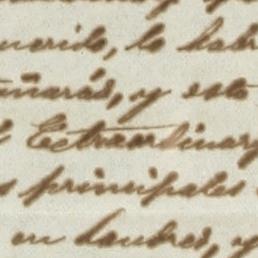 uerido, lo habr
añarás, y esto
Extraordinary
s principales
en Londres, y